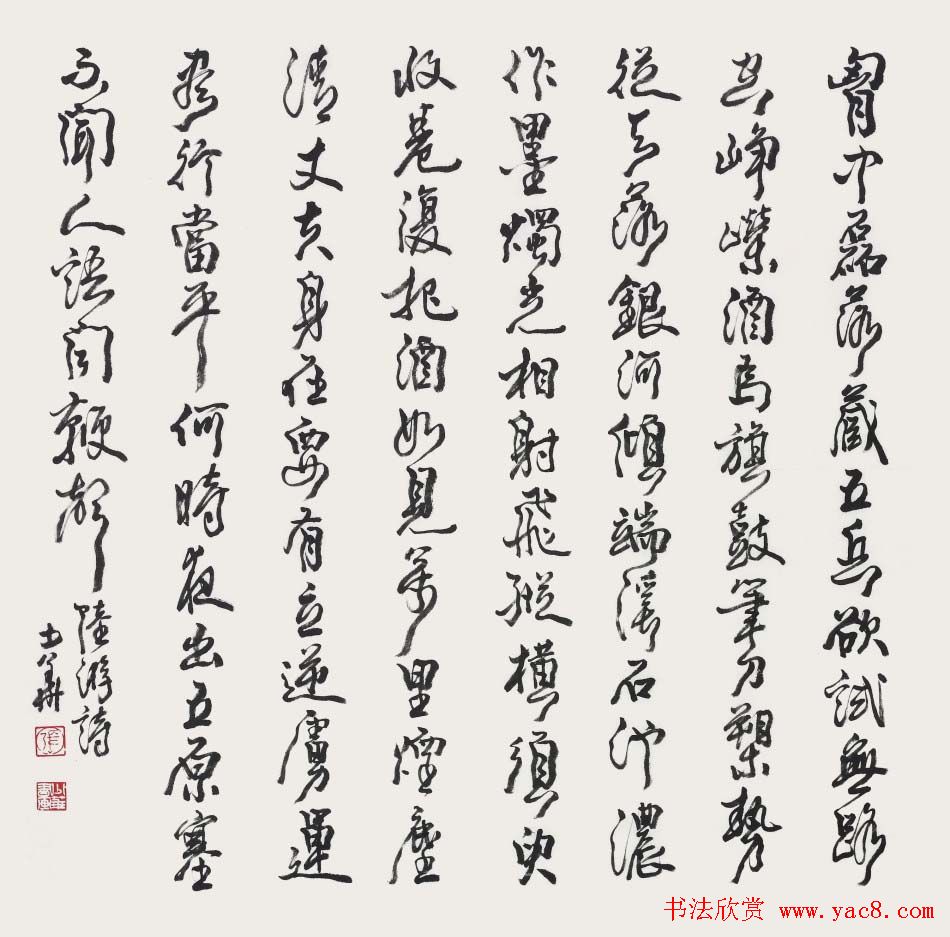 胷中磊落藏五兵欲試無路
空崢嶸酒為旗鼓筆刀槊勢
從天落銀河傾端溪石池濃
作墨燭光相射飛縱橫須臾
收卷復把酒如見萬里煙塵
清丈夫身在要有立逆虜運
盡行當平何時夜出五原塞
不聞人語聞鞭聲
陸游詩
书法欣赏 www.yac8.com